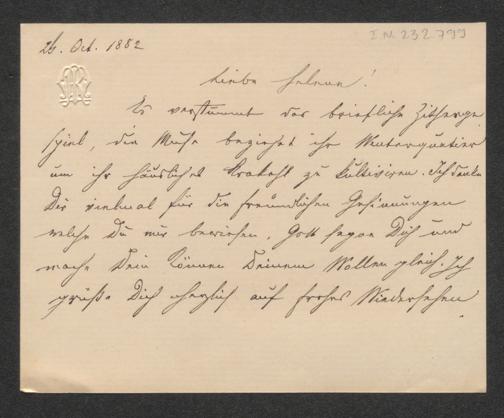 26. Oct. 1882
I N 232.799
Liebe Helene!
Es verstummt das briefliche Zitherge
spiel, die Muse bezieht ihr Winterquartier
um ihr häusliches zu kultiviren. Ich danke
Dir vielmal für die freundlichen Gesinnungen
welche Du mir bewiesen. Gott segne Dich und
mache Dein Können Deinem Wollen gleich. Ich
grüße Dich herzlich auf frohes Wiedersehen